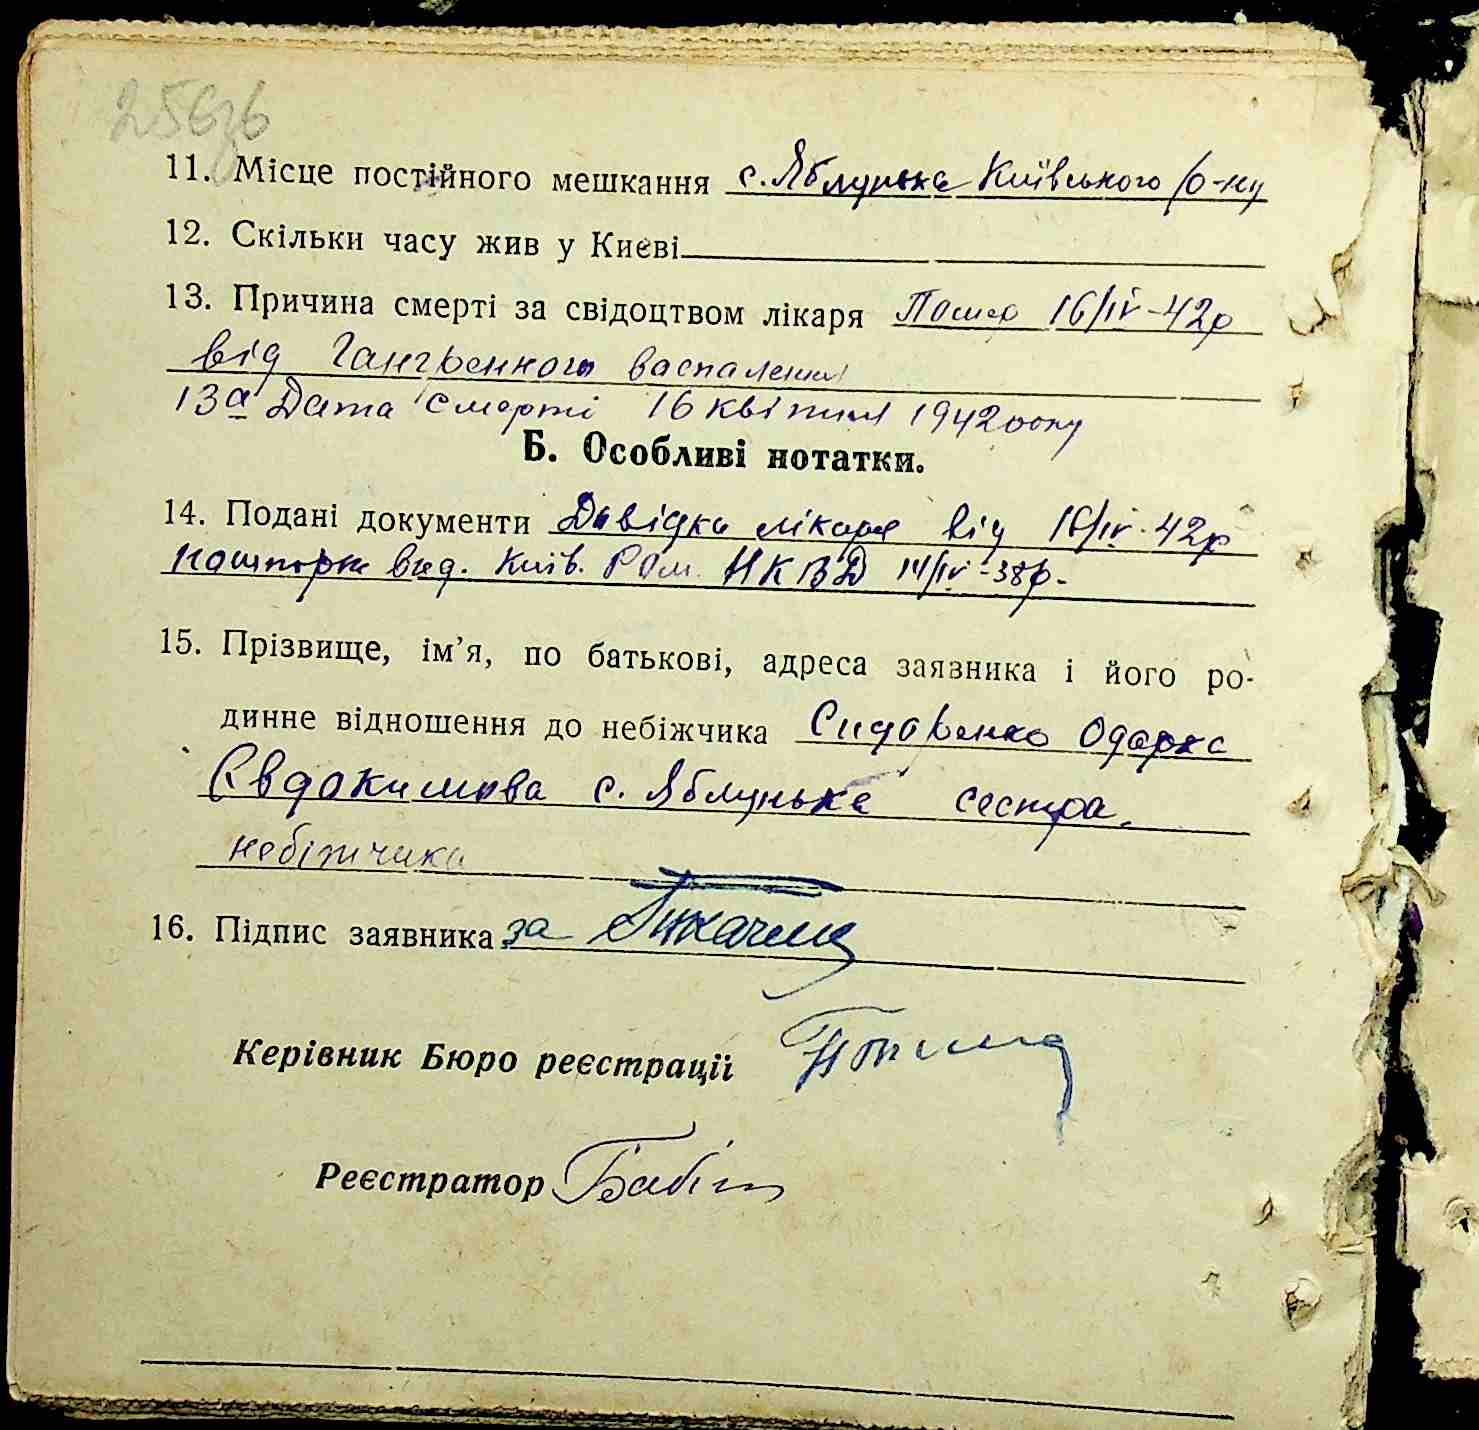 11. Місце постійного мешкання с. Яблунька Київського р-ну
12. Скільки часу жив у Києві
13. Причина смерті за свідоцтвом лікаря Помер 16/IV-42р
від Гангренного воспалення
13а Дата смерті 16 квітня 1942 року
Б. Особливі нотатки.
14. Подані документи Довідка лікаря від 16/IV-42р
пашпорт вид. Київ. НКВД 14/IV-38р.
15. Прізвище, ім’я, по батькові, адреса заявника і його ро-
динне відношення до небіжчика Сидоренко Одарка
Євдокимова с. Яблунька сестра
небіжчика
16. Підпис заявника за
Керівник Бюро реєстрації
Реєстратор